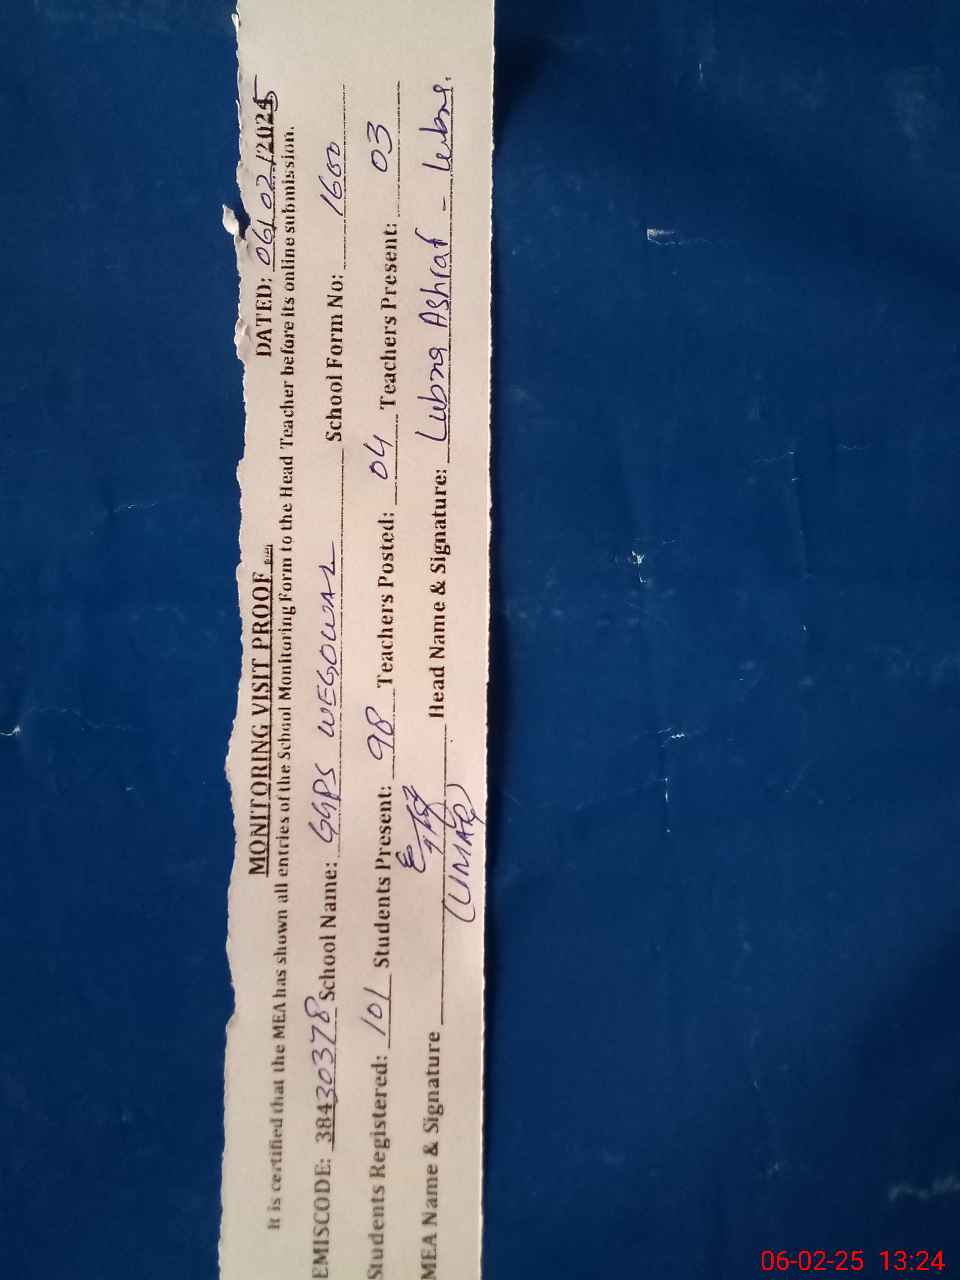 MONITORING VISIT PROOF DATED: 06/02/2025
It is certified that the MEA has shown all entries of the School Monitoring Form to the Head Teacher before its online submission.
EMISCODE: 38430378 School Name: GGPS WEGOWAL School Form No: 1600
Students Registered: 101 Students Present: 98 Teachers Posted: 04 Teachers Present: 03
MEA Name & Signature (UMAR) Head Name & Signature: Lubna Ashraf - Lubna.
06-02-25 13:24